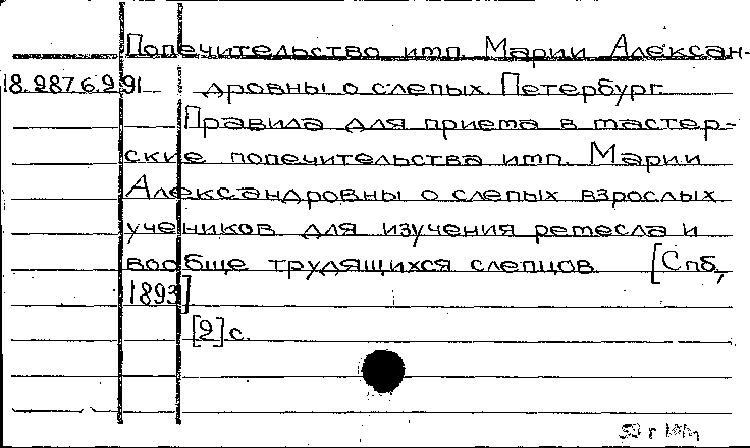 Попечительство имп. Марии Алексан-
18.287 6.291 дровны о слепых. Петербург.
Правила для приема в мастер-
ские попечительства имп. Марии
Александровны о слепых взрослых
учеников для изучения ремесла и
вообще трудящихся слепцов. [Спб,
1893]
[2] с.